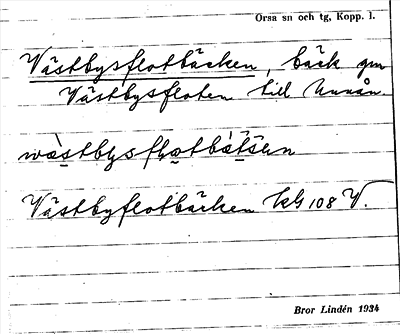 Orsa sn och tg, Kopp. l.
Västbysflotbäcken, bäck gm
Västbysfloten till Unnån.
Västbyflotbäcken kG 108 V.
Bror Lindén 1934